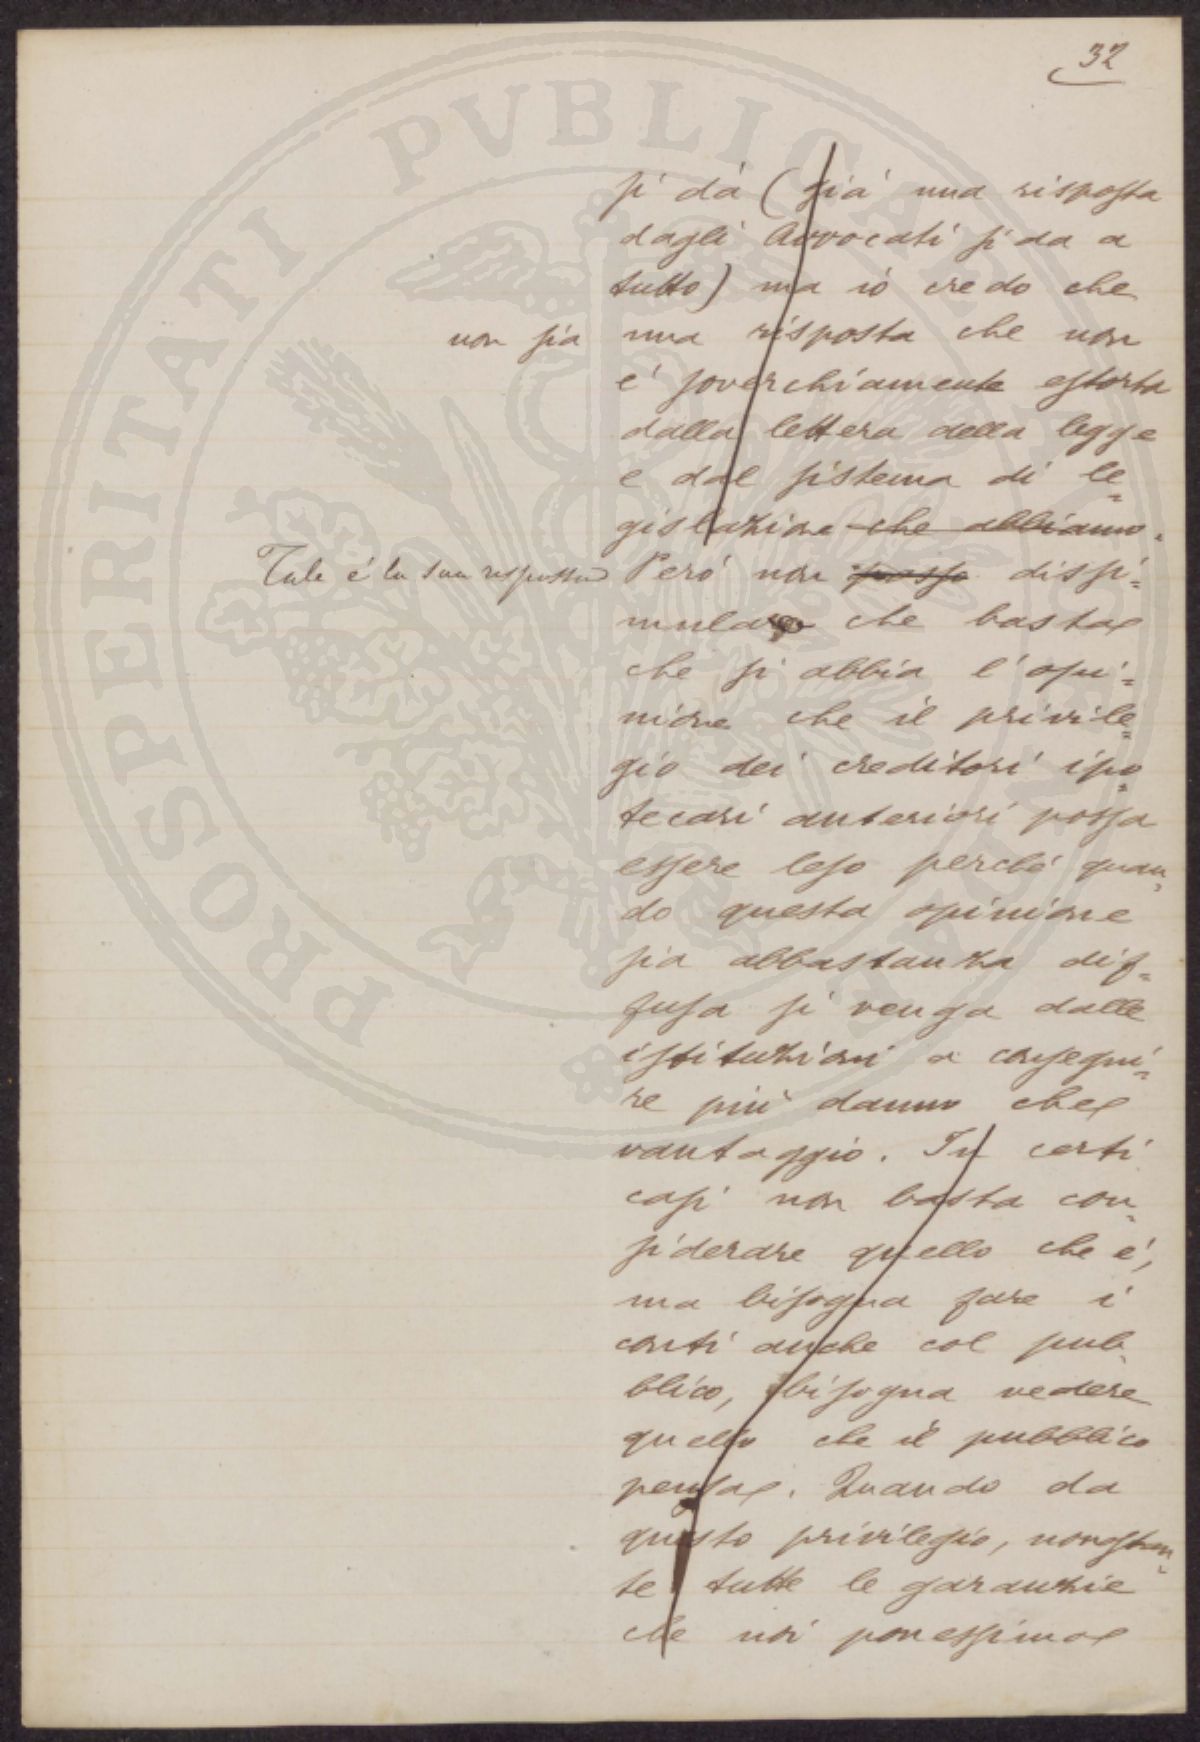 32
si dà (già una risposta
dagli Avvocati si da a
tutto) ma io credo che
non sia una risposta che non
è soverchiamente estorta
dalla lettera della legge
e dal sistema di le=
gislazione che abbiamo.
Tale è la sua risposta Però non posso dissi=
mulare che basta
che si abbia l'opi=
nione che il privile=
gio dei creditori ipo=
tecari anteriori possa
essere leso perchè quan=
do questa opinione
sia abbastanza dif=
fusa si venga dalle
istituzioni a consegui=
re più danno che
vantaggio. In certi
casi non basta con=
siderare quello che è,
ma bisogna fare i
conti anche col pub=
blico, bisogna vedere
quello che il pubblico
pensa. Quando da
questo privilegio, nonostan=
te tutte le garanzie
che noi ponessimo
PROSPERITATI PVBLICAE